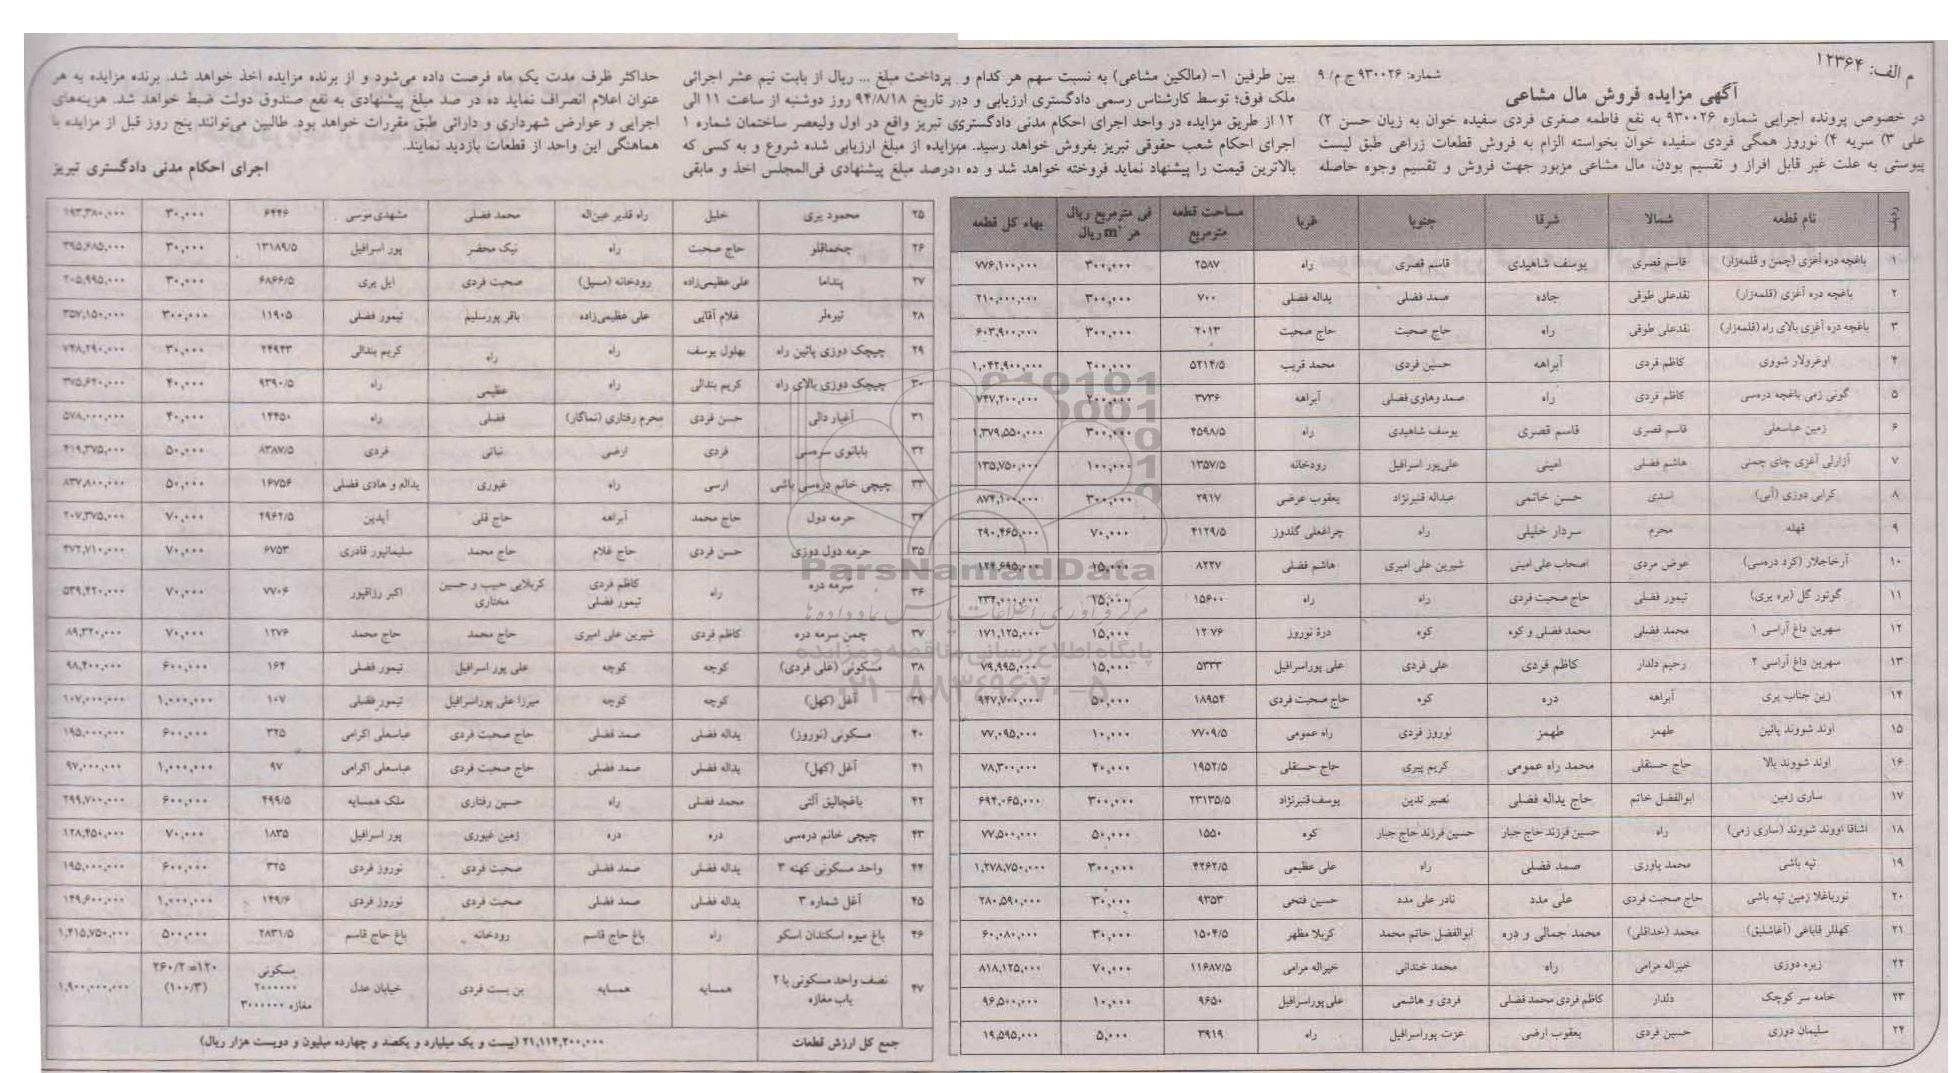 م الف: ۱۲۳۶۴
شماره: ۹۳۰۰۲۶ ج م/ ۹
آگهی مزایده فروش مال مشاعی
در خصوص پرونده اجرایی شماره ۹۳۰۰۲۶ به نفع فاطمه صغری فردی سفیده خوان به زیان حسن ۲)
علی ۳) سریه ۴) نوروز همگی فردی سفیده خوان بخواسته الزام به فروش قطعات زراعی طبق لیست
پیوستی به علت غیر قابل افراز و تقسیم بودن، مال مشاعی مزبور جهت فروش و تقسیم وجوه حاصله
بین طرفین ۱- (مالکین مشاعی) به نسبت سهم هر کدام و
ملک فوق؛ توسط کارشناس رسمی دادگستری ارزیابی و در تاریخ ۹۴/۸/۱۸ روز دوشنبه از ساعت ۱۱ الی
۱۲ از طریق مزایده در واحد اجرای احکام مدنی دادگستری تبریز واقع در اول ولیعصر ساختمان شماره ۱
اجرای احکام شعب حقوقی تبریز بفروش خواهد رسید. مزایده از مبلغ ارزیابی شده شروع و به کسی که
بالاترین قیمت را پیشنهاد نماید فروخته خواهد شد و ده درصد مبلغ پیشنهادی فی‌المجلس اخذ و مابقی
پرداخت مبلغ ... ریال از بابت نیم عشر اجرائی
حداکثر ظرف مدت یک ماه فرصت داده می‌شود و از برنده مزایده اخذ خواهد شد. برنده مزایده به هر
عنوان اعلام انصراف نماید ده در صد مبلغ پیشنهادی به نفع صندوق دولت ضبط خواهد شد. هزینه‌های
اجرایی و عوارض شهرداری و دارائی طبق مقررات خواهد بود. طالبین می‌توانند پنج روز قبل از مزایده با
هماهنگی این واحد از قطعات بازدید نمایند.
اجرای احکام مدنی دادگستری تبریز
ردیف نام قطعه شمالا شرقا جنوبا غربا مساحت قطعه مترمربع فی مترمربع ریال هر m² ریال بهاء کل قطعه
۱ باغچه دره آغزی (چمن و قلمه‌زار) قاسم قصری یوسف شاهیدی قاسم قصری راه ۲۵۸۷ ۳۰۰,۰۰۰ ۷۷۶,۱۰۰,۰۰۰
۲ باغچه دره آغزی (قلمه‌زار) نقدعلی طوقی جاده صمد فضلی یداله فضلی ۷۰۰ ۳۰۰,۰۰۰ ۲۱۰,۰۰۰,۰۰۰
۳ باغچه دره آغزی بالای راه (قلمه‌زار) نقدعلی طوقی راه حاج صحبت حاج صحبت ۲۰۱۳ ۳۰۰,۰۰۰ ۶۰۳,۹۰۰,۰۰۰
۴ اوغرولار شووی کاظم فردی آبراهه حسین فردی محمد قریب ۵۲۱۴/۵ ۲۰۰,۰۰۰ ۱,۰۴۲,۹۰۰,۰۰۰
۵ گونی زمی باغچه دره‌سی کاظم فردی راه صمد وهاوی فضلی آبراهه ۳۷۳۶ ۲۰۰,۰۰۰ ۷۴۷,۲۰۰,۰۰۰
۶ زمین عباسعلی قاسم قصری قاسم قصری یوسف شاهیدی راه ۴۵۹۸/۵ ۳۰۰,۰۰۰ ۱,۳۷۹,۵۵۰,۰۰۰
۷ آزارلی آغزی چای چمنی هاشم فضلی امینی علی‌پور اسرافیل رودخانه ۱۳۵۷/۵ ۱۰۰,۰۰۰ ۱۳۵,۷۵۰,۰۰۰
۸ کرابی دوزی (آبی) اسدی حسن خاتمی عبداله قنبرنژاد یعقوب عرضی ۲۹۱۷ ۳۰۰,۰۰۰ ۸۷۴,۱۰۰,۰۰۰
۹ قهله محرم سردار خلیلی راه چراغعلی گلدوز ۴۱۲۹/۵ ۷۰,۰۰۰ ۲۹۰,۴۶۵,۰۰۰
۱۰ آرخاجلار (کرد دره‌سی) عوض مردی اصحاب علی امینی شیرین علی امیری هاشم فضلی ۸۲۲۷ ۱۵,۰۰۰ ۱۲۴,۶۹۵,۰۰۰
۱۱ گوتور گل (بره یری) تیمور فضلی حاج صحبت فردی راه راه ۱۵۶۰۰ ۱۵,۰۰۰ ۲۳۴,۰۰۰,۰۰۰
۱۲ سهرین داغ آراسی ۱ محمد فضلی محمد فضلی و کوه کوه درة نوروز ۱۲۷۶ ۱۵,۰۰۰ ۱۷۱,۱۲۵,۰۰۰
۱۳ سهرین داغ آراسی ۲ رحیم دلدار کاظم فردی علی فردی علی پوراسرافیل ۵۳۳۳ ۱۵,۰۰۰ ۷۹,۹۹۵,۰۰۰
۱۴ زین جناب یری آبراهه دره کوه حاج صحبت فردی ۱۸۹۵۴ ۵۰,۰۰۰ ۹۴۷,۷۰۰,۰۰۰
۱۵ اوند شووند پائین طهمز طهمز نوروز فردی راه عمومی ۷۷۰۹/۵ ۱۰,۰۰۰ ۷۷,۰۹۵,۰۰۰
۱۶ اوند شووند بالا حاج حسنقلی محمد راه عمومی کریم پیری حاج حسنقلی ۱۹۵۲/۵ ۴۰,۰۰۰ ۷۸,۳۰۰,۰۰۰
۱۷ ساری زمین ابوالفضل خاتم حاج یداله فضلی نصیر تدین یوسف قنبرنژاد ۲۳۱۳۵/۵ ۳۰۰,۰۰۰ ۶۹۴,۰۶۵,۰۰۰
۱۸ اشاقا اووند شووند (ساری زمی) راه حسین فرزند حاج جبار حسین فرزند حاج جبار کوه ۱۵۵۰ ۵۰,۰۰۰ ۷۷,۵۰۰,۰۰۰
۱۹ تپه باشی محمد یاوری صمد فضلی راه علی عظیمی ۴۲۶۲/۵ ۳۰۰,۰۰۰ ۱,۲۷۸,۷۵۰,۰۰۰
۲۰ نورباغلا زمین تپه باشی حاج صحبت فردی علی مدد نادر علی مدد حسین فتحی ۹۳۵۳ ۳۰,۰۰۰ ۲۸۰,۵۹۰,۰۰۰
۲۱ کهللر قاباغی (آغاشلیق) محمد (خداقلی) محمد جمالی و دره ابوالفضل حاتم محمد کربلا مظهر ۱۵۰۴/۵ ۳۰,۰۰۰ ۶۰,۰۸۰,۰۰۰
۲۲ زیره دوزی خیراله مرامی راه محمد خندانی خیراله مرامی ۱۱۶۸۷/۵ ۷۰,۰۰۰ ۸۱۸,۱۲۵,۰۰۰
۲۳ خامه سر کوچک دلدار کاظم فردی محمد فضلی فردی و هاشمی علی پوراسرافیل ۹۶۵۰ ۱۰,۰۰۰ ۹۶,۵۰۰,۰۰۰
۲۴ سلیمان دوزی حسین فردی یعقوب ارضی عزت پوراسرافیل راه ۳۹۱۹ ۵,۰۰۰ ۱۹,۵۹۵,۰۰۰
۲۵ محمود یری خلیل راه قدیر عین‌اله محمد فضلی مشهدی موسی ۶۴۴۶ ۳۰,۰۰۰ ۱۹۳,۳۸۰,۰۰۰
۲۶ چخماقلو حاج صحبت راه نیک محضر پور اسرافیل ۱۳۱۸۹/۵ ۳۰,۰۰۰ ۳۹۵,۶۸۵,۰۰۰
۲۷ پنداما علی عظیمی‌زاده رودخانه (مسیل) صحبت فردی ایل یری ۶۸۶۶/۵ ۳۰,۰۰۰ ۲۰۵,۹۹۵,۰۰۰
۲۸ تیره‌لر غلام آقایی علی عظیمی‌زاده باقر پورسلیم تیمور فضلی ۱۱۹۰۵ ۳۰۰,۰۰۰ ۳۵۷,۱۵۰,۰۰۰
۲۹ چیچک دوزی پائین راه بهلول یوسف راه راه کریم بندالی ۲۴۹۴۳ ۳۰,۰۰۰ ۷۴۸,۲۹۰,۰۰۰
۳۰ چیچک دوزی بالای راه کریم بندالی راه عظیمی راه ۹۳۹۰/۵ ۴۰,۰۰۰ ۳۷۵,۶۲۰,۰۰۰
۳۱ آغیار دالی حسن فردی محرم رفتاری (نماگار) فضلی راه ۱۴۴۵۰ ۴۰,۰۰۰ ۵۷۸,۰۰۰,۰۰۰
۳۲ باباتوی سره‌سی فردی ارضی نباتی فردی ۸۳۸۷/۵ ۵۰,۰۰۰ ۴۱۹,۳۷۵,۰۰۰
۳۳ چیچی خانم دره‌سی باشی ارسی راه غیوری یداله و هادی فضلی ۱۶۷۵۶ ۵۰,۰۰۰ ۸۳۷,۸۰۰,۰۰۰
۳۴ حرمه دول حاج محمد آبراهه حاج قلی آیدین ۲۹۶۲/۵ ۷۰,۰۰۰ ۲۰۷,۳۷۵,۰۰۰
۳۵ حرمه دول دوزی حسن فردی حاج غلام حاج محمد سلیمانپور قادری ۶۷۵۳ ۷۰,۰۰۰ ۴۷۲,۷۱۰,۰۰۰
۳۶ سرمه دره راه کاظم فردی تیمور فضلی کربلایی حبیب و حسین مختاری اکبر رزاقپور ۷۷۰۶ ۷۰,۰۰۰ ۵۳۹,۴۲۰,۰۰۰
۳۷ چمن سرمه دره کاظم فردی شیرین علی امیری حاج محمد حاج محمد ۱۲۷۶ ۷۰,۰۰۰ ۸۹,۳۲۰,۰۰۰
۳۸ مسکونی (علی فردی) کوچه کوچه علی پور اسرافیل تیمور فضلی ۱۶۴ ۶۰۰,۰۰۰ ۹۸,۴۰۰,۰۰۰
۳۹ آغل (کهل) کوچه کوچه میرزا علی پوراسرافیل تیمور فضلی ۱۰۷ ۱,۰۰۰,۰۰۰ ۱۰۷,۰۰۰,۰۰۰
۴۰ مسکونی (نوروز) یداله فضلی صمد فضلی حاج صحبت فردی عباسعلی اکرامی ۳۲۵ ۶۰۰,۰۰۰ ۱۹۵,۰۰۰,۰۰۰
۴۱ آغل (کهل) یداله فضلی صمد فضلی حاج صحبت فردی عباسعلی اکرامی ۹۷ ۱,۰۰۰,۰۰۰ ۹۷,۰۰۰,۰۰۰
۴۲ باغجالیق آلتی محمد فضلی راه حسین رفتاری ملک همسایه ۴۹۹/۵ ۶۰۰,۰۰۰ ۲۹۹,۷۰۰,۰۰۰
۴۳ چیچی خانم دره‌سی دره دره زمین غیوری پور اسرافیل ۱۸۳۵ ۷۰,۰۰۰ ۱۲۸,۴۵۰,۰۰۰
۴۴ واحد مسکونی کهنه ۳ یداله فضلی صمد فضلی صحبت فردی نوروز فردی ۳۲۵ ۶۰۰,۰۰۰ ۱۹۵,۰۰۰,۰۰۰
۴۵ آغل شماره ۳ یداله فضلی صمد فضلی صحبت فردی نوروز فردی ۱۴۹/۶ ۱,۰۰۰,۰۰۰ ۱۴۹,۶۰۰,۰۰۰
۴۶ باغ میوه اسکندان اسکو راه باغ حاج قاسم رودخانه باغ حاج قاسم ۲۸۳۱/۵ ۵۰۰,۰۰۰ ۱,۴۱۵,۷۵۰,۰۰۰
۴۷ نصف واحد مسکونی با ۲ باب مغازه همسایه همسایه بن بست فردی خیابان عدل مسکونی ۲۰۰۰۰۰۰ مغازه ۳۰۰۰۰۰۰ ۲۶۰/۲=۱۲۰ (۱۰۰/۳) ۱,۹۰۰,۰۰۰,۰۰۰
جمع کل ارزش قطعات ۲۱,۱۱۴,۲۰۰,۰۰۰ (بیست و یک میلیارد و یکصد و چهارده میلیون و دویست هزار ریال)
ParsNamadData
پایگاه اطلاع رسانی مناقصه و مزایده
۰۲۱-۸۸۳۴۹۶۷۰-۵